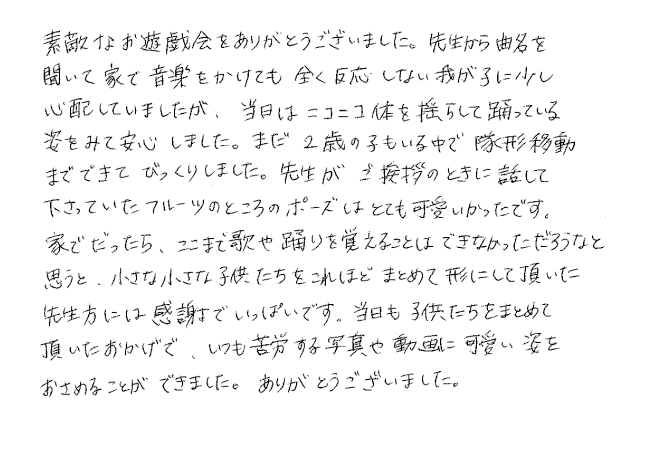 素敵なお遊戯会をありがとうございました。先生から曲名を
聞いて家で音楽をかけても全く反応しない我が子に少し
心配していましたが、当日はニコニコ体を揺らして踊っている
姿をみて安心しました。まだ2歳の子もいる中で隊形移動
までできてびっくりしました。先生がご挨拶のときに話して
下さっていたフルーツのところのポーズはとても可愛いかったです。
家でだったら、ここまで歌や踊りを覚えることはできなかっただろうなと
思うと、小さな小さな子供たちをこれほどまとめて形にして頂いた
先生方には感謝でいっぱいです。当日も子供たちをまとめて
頂いたおかげで、いつも苦労する写真や動画に可愛い姿を
おさめることができました。ありがとうございました。